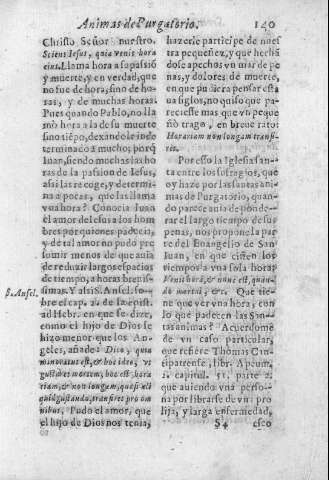 Animas de Purgatorio. 140
Christo Señor nuestro.
Sciens Iesus, quia venit hora
eius. Llama hora a sa passió
y muerte, y en verdad, que
no fue de hora, sino de ho-
ras, y de muchas horas.
Pues quando Pablo, no lla
mò hora a la de su muerte
sino tiẽpo, dexandole inde
terminado a mucho; porq̃
Iuan, siendo muchas las ho
ras de la passion de Iesus,
assi las recoge, y determi-
na a pocas, que las llama
vna hora? Conocia Iuan
el amor de Iesus a los hom
bres por quiones padecia,
y de tal amor no pudo pre
sumir menos de que auia
de reduzir largos espacios
de tiempo, a horas breuis-
simas. Y assi S. Ansel. so-
S. Ansel.
bre el cap. 2. de la epist.
ad Hebr. en que se dize,
como el hijo de Dios se
hizo menor que los An-
geles, añade: Dico, quia
minoratus est, & hoc ideo, vt
gustaret mortem, hoc est, hora
riam, & non longam, quasi ali
quid gustando, transires pro om
nibus. Pudo el amor, que
el hijo de Dios nos tenia,
hazerle participe de nues
tra pequeñez, y que hazié
dose apechos vn mar de pe
nas, y dolores de muerte,
en que pudiera pensar està
ua siglos, no quiso que pa
reciesse mas que vn peque
ño trago, en breue rato:
Horarium non longam transi-
ret.
Por esso la Iglesia san-
ta entre los sufragios, que
oy haze por las santas ani-
mas de Purgatorio, quan-
do parece auia de ponde-
rar el largo tiempo de sus
penas, nos propone la par
te del Euangelio de San
Iuan, en que ciñen los
tiempos a vna sola hora:
Venit hora, & nunc est, quan-
do mortui, &c. Que tie-
ne que ver vna hora, con
lo que padecen las San-
tas animas? Acuerdome
de vn caso particular,
que refiere Thomas Can-
tipratense, libr. Apeum,
2. capitul. 51. parte 2.
que auiendo vna perso-
na por librarse de vna pro
lija, y larga enfermedad,
S4 esco